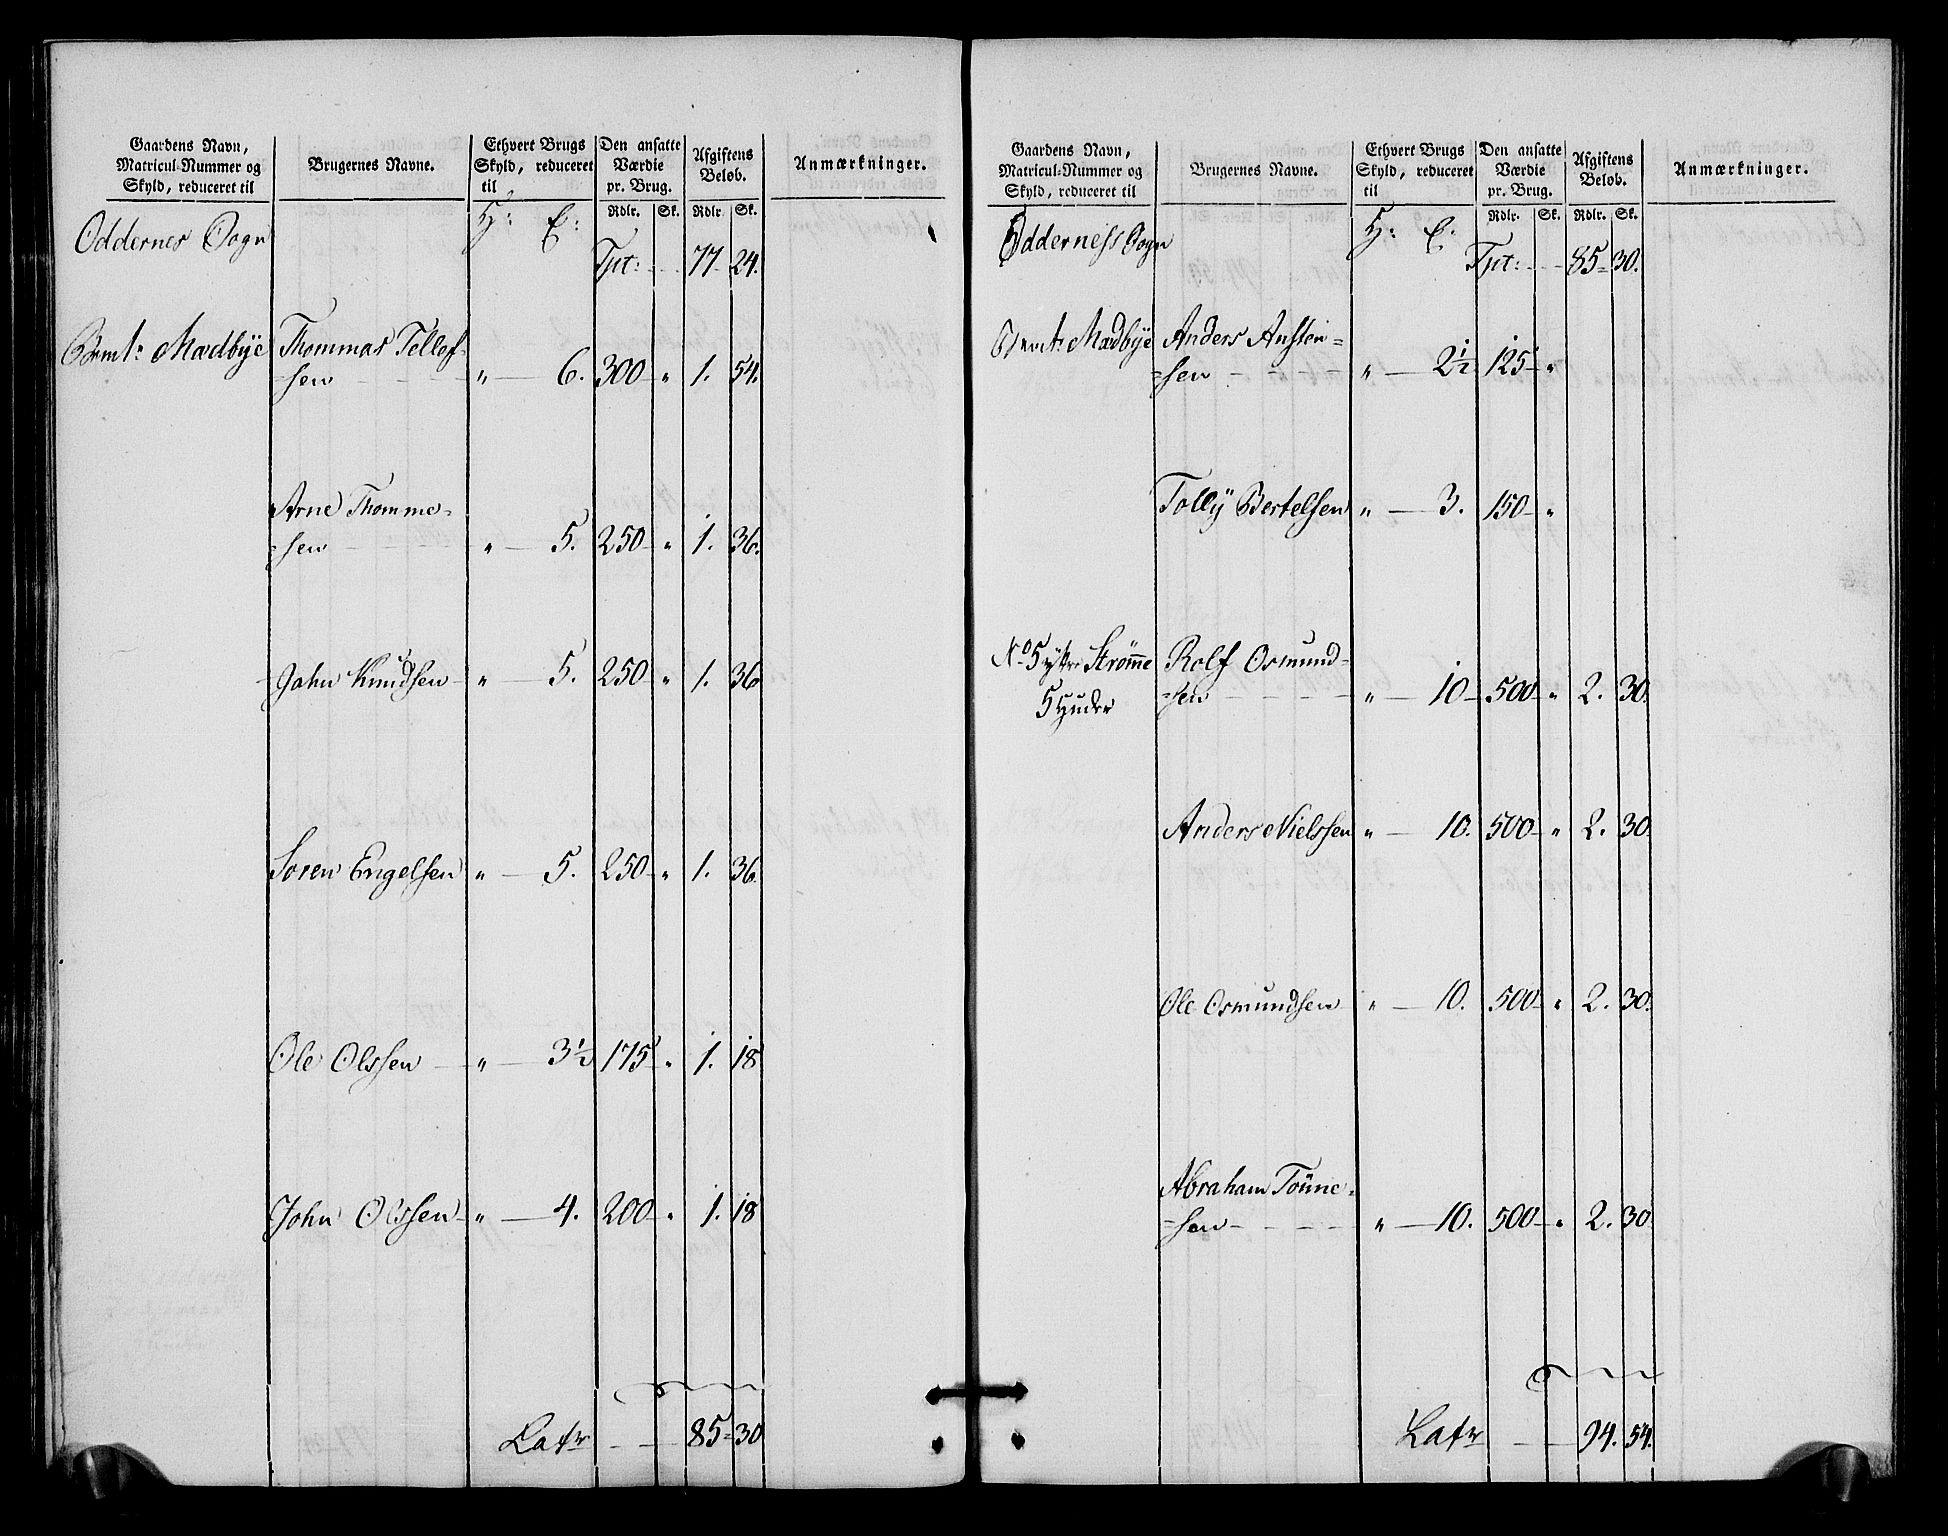 Gaardens Navn,
Matricul-Nummer og
Skyld, reduceret til
Brugernes Navne.
Ethvert Brugs
Skyld, reduceret
til
Den ansatte
Værdie
pr. Brug.
Afgiftens
Beløb.
Anmærkninger.
Rdlr. Sk. Rdlr. Sk.
Oddernes Sogn H: E:
Tpt: 77 24.
Bemt: Mædbye Thommas Tellef-
=sen „ 6. 300 „ 1. 54.
Arne Thomme=
=sen „ 5. 250 „ 1. 36.
John Knudsen „ 5. 250 „ 1. 36
Soren Engelsen „ 5. 250 „ 1. 36.
Ole Olssen „ 3½ 175 „ 1. 18
John Olssen „ 4. 200 „ 1. 18
Latr 85 30
Gaardens Navn,
Matricul-Nummer og
Skyld, reduceret til
Brugernes Navne.
Ethvert Brugs
Skyld, reduceret
til
Den ansatte
Værdie
pr. Brug.
Afgiftens
Beløb.
Anmærkninger.
Rdlr. Sk. Rdlr. Sk.
Odderness Sogn H: E:
Tpt: 85 30.
Bemt: Mædbye Anders Ansten=
=sen „ 2½ 125 „
Tolly Bertelsen „ 3. 150 „
No 5 ystre Strømme Rolf Osmund=
5 Huder =sen „ 10 500 „ 2. 30.
Anders Nielssen „ 10. 500 „ 2. 30.
Ole Osmundsen „ 10. 500 „ 2. 30.
Abraham Tönne=
=sen „ 10. 500 „ 2. 30
Latr 94. 54.